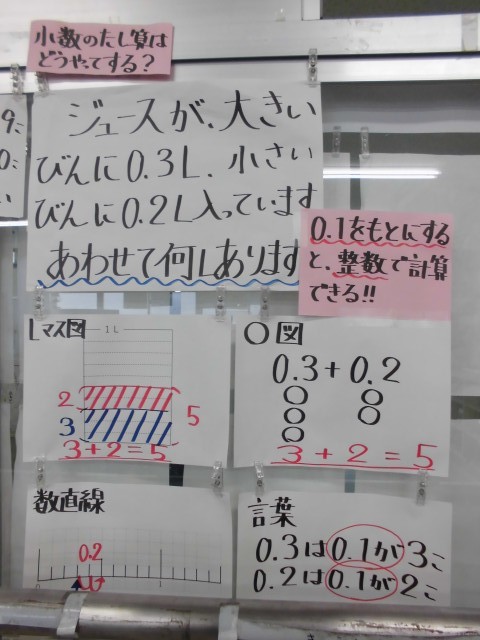 小数のたし算は
どうやってする?
ジュースが、大きい
びんに0.3L、小さい
びんに0.2L入っています
あわせて何Lあります
0.1をもとにする
と、整数で計算
できる!!
Lマス図
1L
2
3
5
3+2=5
〇図
0.3+0.2
3+2=5
数直線
0.2
0
言葉
0.3は0.1が3こ
0.2は0.1が2こ